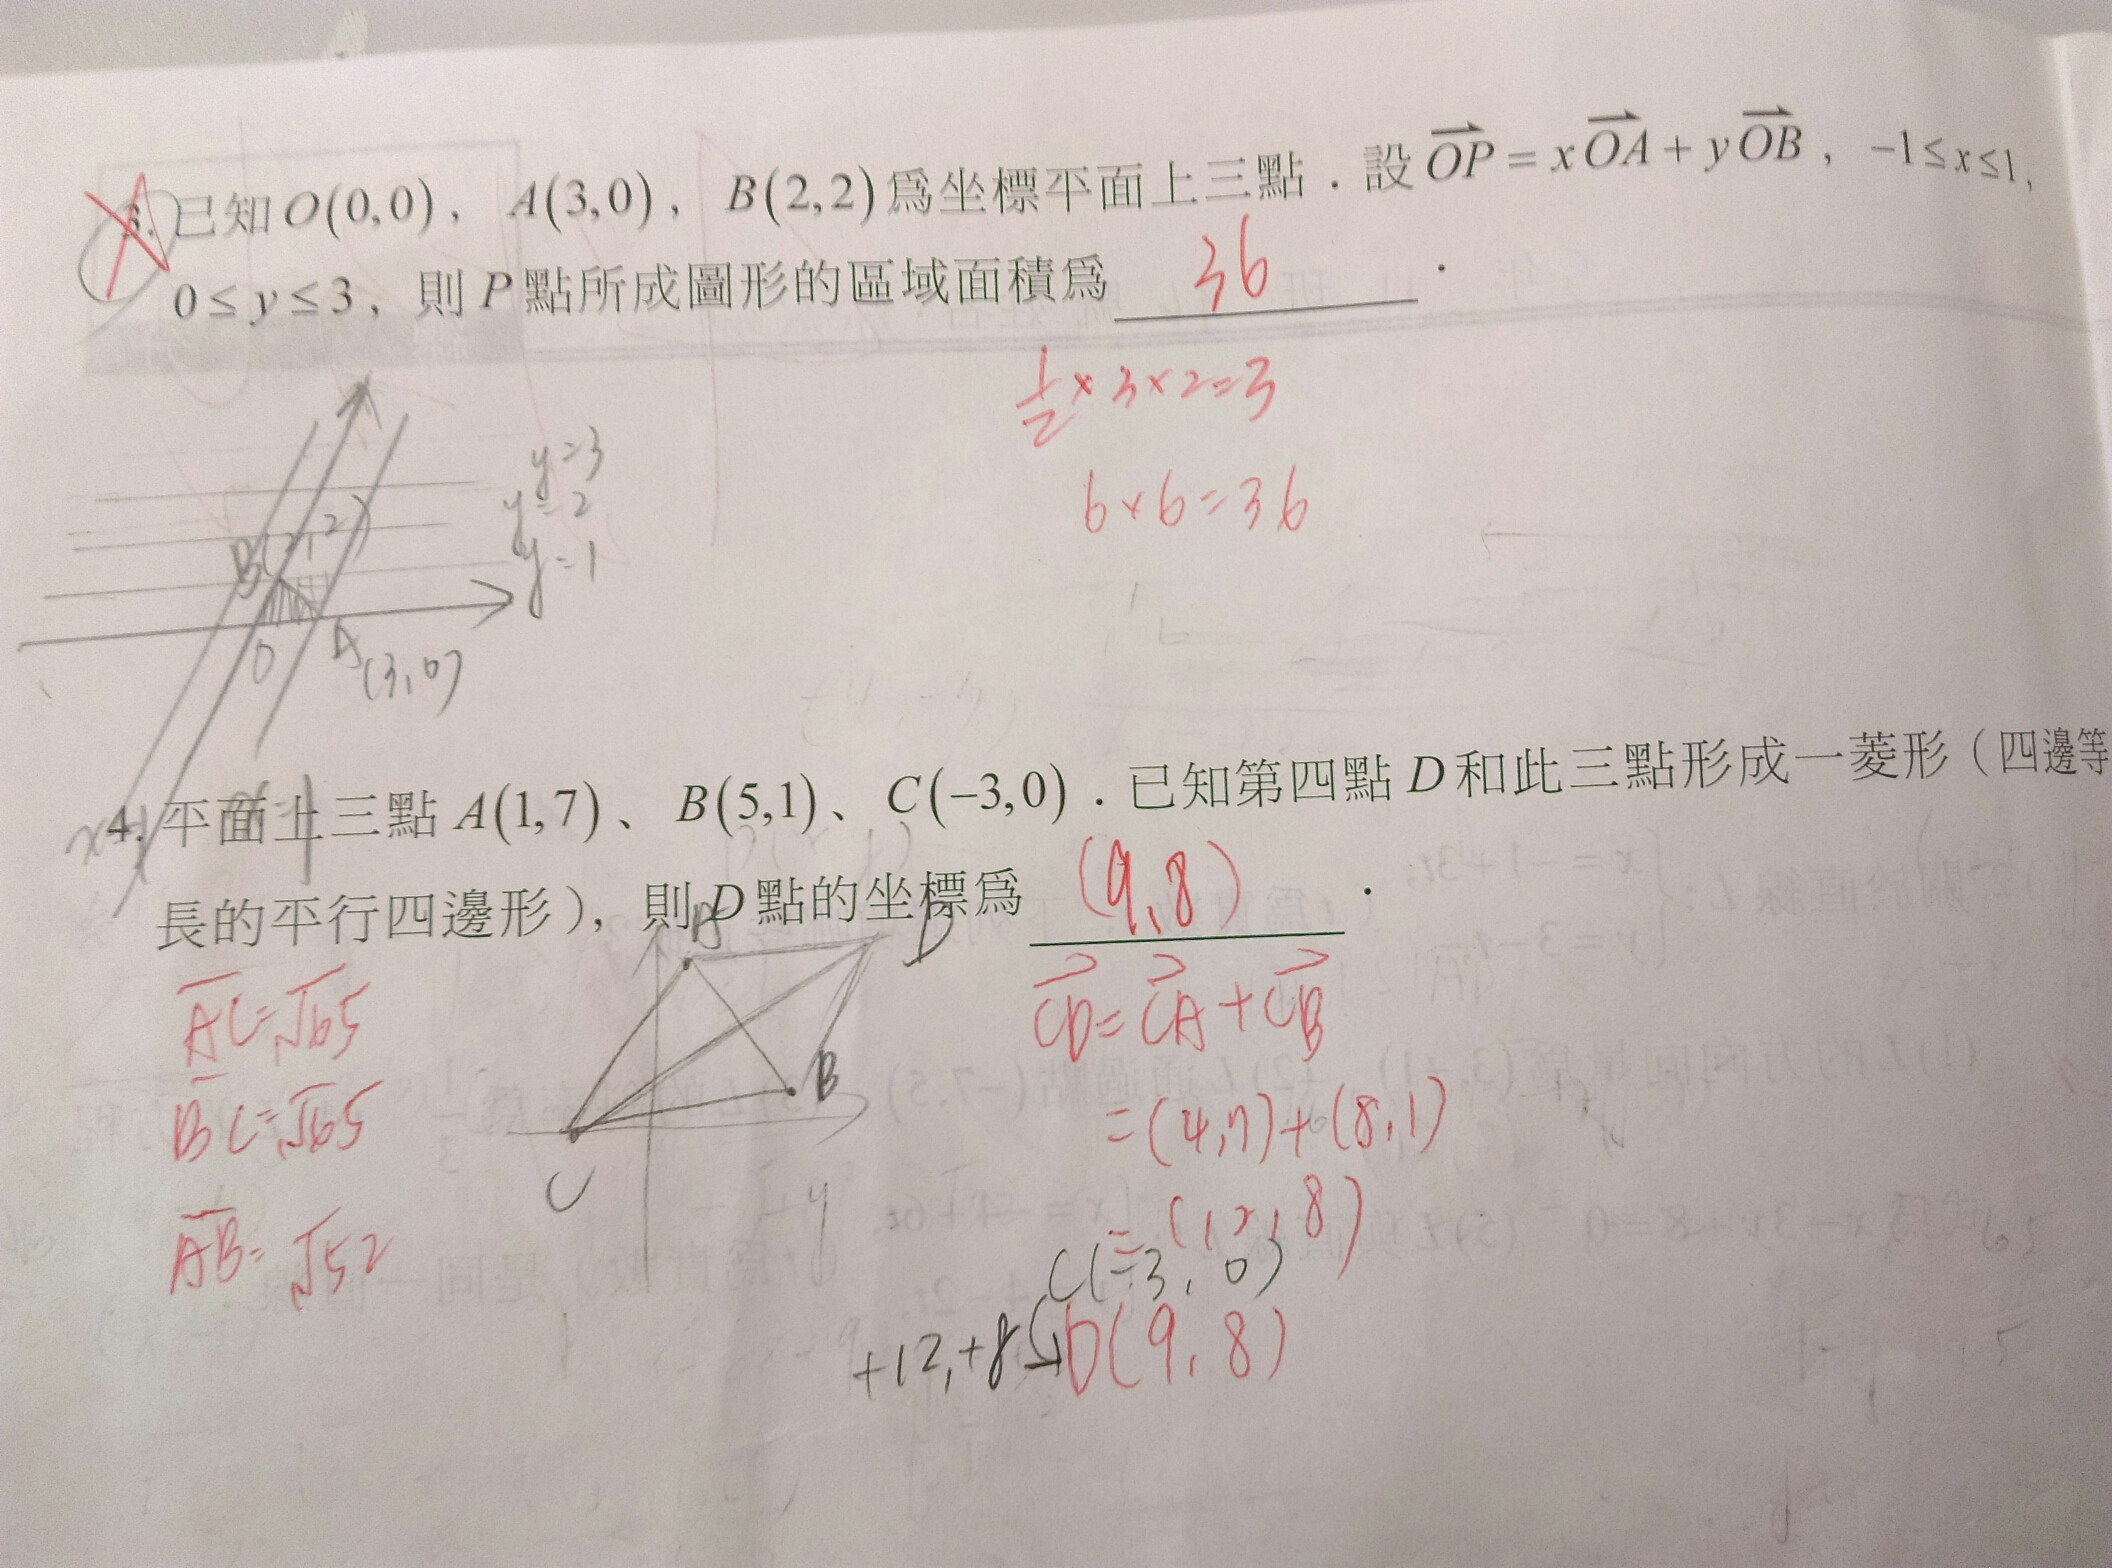 3. 已知 O(0,0), A(3,0), B(2,2)為坐標平面上三點．設 OP⃗ = x OA⃗ + y OB⃗, -1≤x≤1,
0≤y≤3, 則 P 點所成圖形的區域面積為 36 .
1/2×3×2=3
6×6=36
y=3
y=2
y=1
B(2,2)
O
A
(3,0)
4. 平面上三點 A(1,7)、B(5,1)、C(−3,0)．已知第四點 D 和此三點形成一菱形（四邊等
長的平行四邊形），則 D 點的坐標為 (9,8) .
A
D
B
C
AC=√65
BC=√65
AB=√52
CD⃗=CA⃗+CB⃗
=(4,7)+(8,1)
=(12,8)
C(-3,0)
+12,+8 D(9,8)